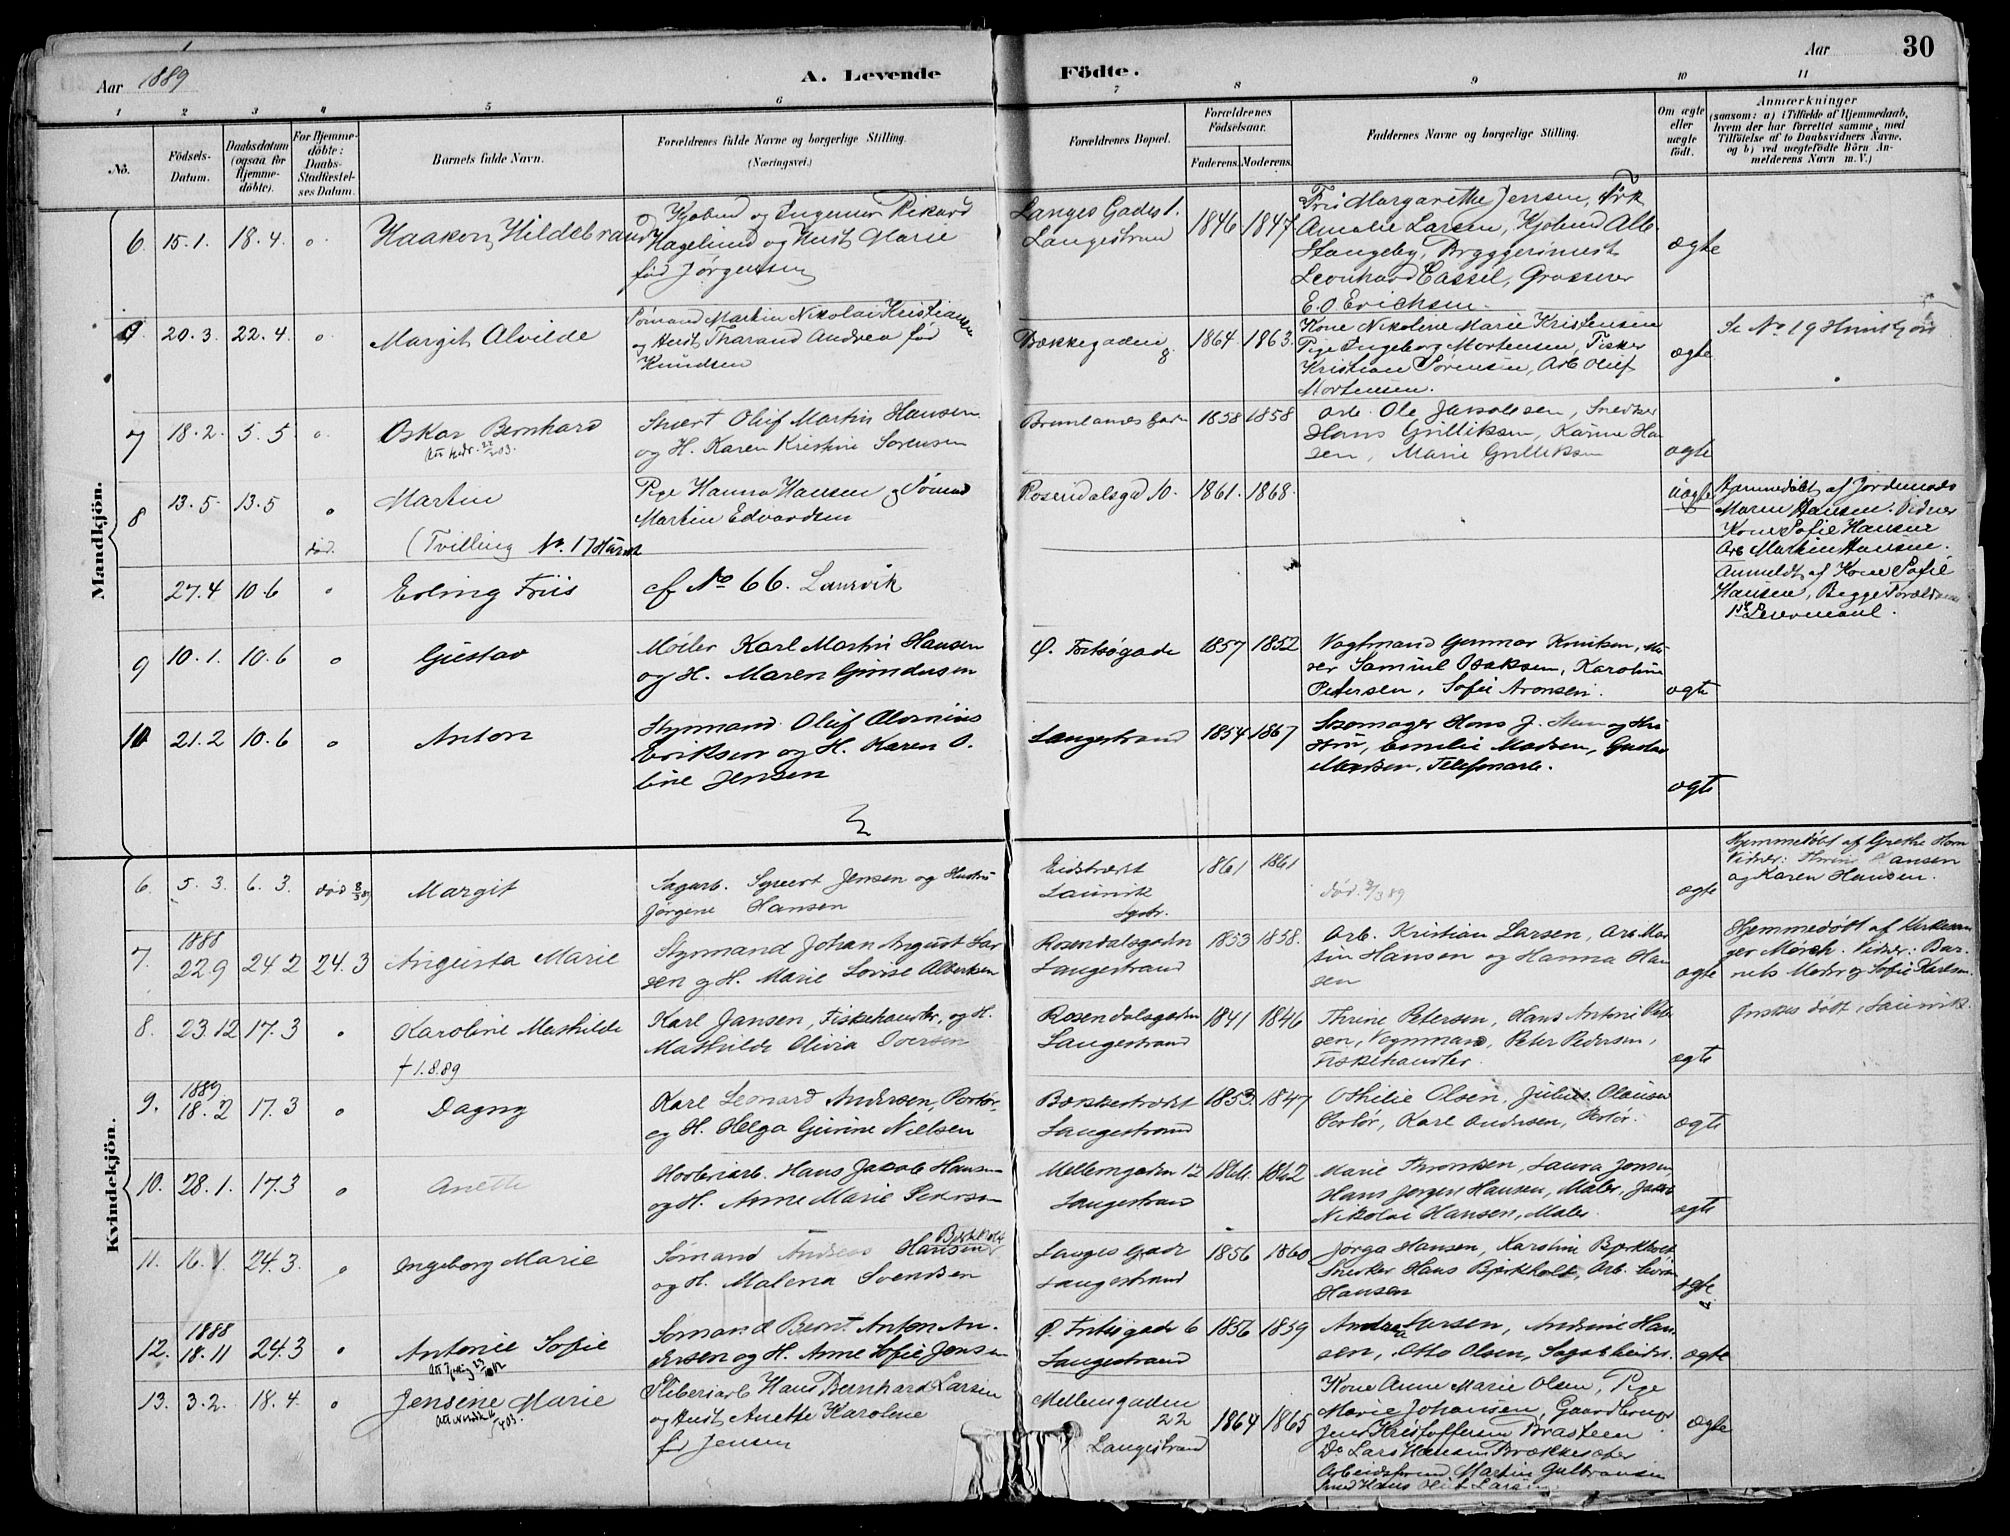 Aar 1889
A. Levende
Födte.
Aar
30
1 2 3 4 5 6 7 8 9 10 11
No.
Födsels-Datum.
Daabsdatum (ogsaa for Hjemmedöbte).
For Hjemmedöbte: Daabs-Stadfæstelses Datum.
Barnets fulde Navn.
Forældrenes fulde Navne og borgerlige Stilling.
(Næringsvei.)
Forældrenes Bopæl.
Forældrenes Födselsaar.
Faderens. Moderens.
Faddernes Navne og borgerlige Stilling.
Om ægte eller uægte födt.
Anmærkninger
(saasom: a) i Tilfælde af Hjemmedaab, hvem der har forrettet samme, med Tilföielse af to Daabsvidners Navne, og b) ved uægtefödte Börn Anmelderens Navn m. V.)
Mandkjön.
6 15.1. 18.4. Haakon Hildebrand
Kjøbmd og Ingeniør Rikard
Hagelund og Hust. Marie
fød Jørgensen
Langes Gade 1.
Langestrand
1846 1847
Frü Margarethe Jensen, Frk
Amalie Larsen, Kjøbmd Alb.
Stangeby, Bryggerimest
Leonhard Cassel, Grosserer
E. O. Erichsen.
ægte
20.3. 22.4. Margit Alvilde
Sømand Martin Nikolai Kristiansen
og Hust. Tharand Andrea fød
Knudsen
Bækkegaden 8.
1864 1863.
Kone Nikolene Marie Kristensen
Pige Ingeborg Mortensen, Fisker
Kristian Sørensen, Arb Oluf
Mortensen.
ægte
Se No 19
7 18.2. 5.5 Oskar Bernhard
Oluf Martin Hansen
og H. Karen Kristine Sørensen
1858 1858
Arb. Ole Jakobsen, Snedker
Hans Gulliksen, Karine Hansen, Marie Gulliksen
ægte
8 13.5. 13.5 død. Martin
(Tvilling No. 17
Pige Hanna Hansen og Sømd
Martin Edvardsen
Rosendalsgd 10.
1861. 1868.
uægte
Hjemmedøbt af Jordemoder
Maren Hansen. Vidner
Kone Sofie Hansen
Arb Martin Hansen.
Anmeldt af Kone Sofie
Hansen, Begge Forældrenes
1ste Leiermaal.
27.4 10.6 Erling Friis
cf No 66. Laurvik
9 10.1. 10.6 Gustav
Møller Karl Martin Hansen
og H. Maren Gundersen
Ø. Fritsøgade
1857 1852
Vagtmand Gunnar Knutsen,
Samuel Isaksen, Karoline
Petersen, Sofie Aronsen.
ægte
10 21.2 10.6 Anton
Styrmand Oluf
Eriksen og H. Karen O-
line Jensen
Langestrand
1854 1867
Skomager Hans J.
Emilie Madsen, Gustav
Madsen, Telefonarb.
ægte
Kvindekjön.
6. 5.3. 6.3. død 8/3 89 Margit
Sagarb. Syvert Jensen og Hustru
Jørgine Hansen
Laurvik
1861 1861
død. 8/3 89
ægte
Hjemmedøbt af Grethe Horn
Vidner: Thrine Hansen
og Karen Hansen.
7. 1888
22.9 24.2 24.3 Augusta Marie
Styrmand Johan August Lar-
sen og H. Marie Lovise Albertsen
Rosendalsgaden
Langestrand
1853 1858.
Arb. Kristian Larsen, Arb Mar-
tin Hansen og Hanna Han-
sen
ægte
Hjemmedøbt af Kirkesan-
ger Mørch. Vidner: Bar-
nets Moder og Sofie Karlsen.
8. 23.12 17.3 Karoline Mathilde
† 1.8.89
Karl Jansen, Fiskehandler, og H.
Mathilde Olivia Iversen
Rosendalsgaden
Langestrand
1841 1846
Thrine Petersen, Hans Anton Peter-
sen, Vognmand, Peter Pedersen,
Fiskehandler.
ægte
Ønskes døbt i Laurvik.
9. 1889
18.2 17.3 Dagny
Karl Leonard Andersen, Portør,
og H. Helga Gurine Nielsen
Bækkestrædet
Langestrand
1853. 1847
Othilie Olsen, Julius Olausen
Portør, Karl Andersen, Portør.
ægte
10. 28.1. 17.3 Anette
Hans Jacob Hansen
og H. Anne Marie Pedersen
Mellemgaden 12
Langestrand
1862
Marie Thronsen, Laura Jensen
Hans Jørgen Hansen, Maler, Jakob
Nikolai Hansen, Maler.
ægte
11. 16.1. 24.3. Ingeborg Marie
Sømand Andreas Hansen
og H. Malena Svendsen
Langes Gade
Langestrand
1856 1860
Jørga Hansen, Karoline Bjerkholt,
Snedker Hans Bjerkholt, Arb.
Hansen
ægte
12. 1888
18.11 24.3 Antonie Sofie
Sømand Bernt Anton An-
dersen og H. Anne Sofie Jensen
Ø. Fritsøgade 6
Langestrand
1856 1859
Andrea Larsen, Andrine Han-
sen, Otto Olsen,
ægte
13. 3.2. 18.4. Jensine Marie
Hans Bernhard Larsen
og Hust. Anette Karoline
fød Jensen
Mellemgaden
22
Langestrand
1864 1865
Kone Anne Marie Olsen, Pige
Marie Johansen, Gaardbruger
Jens Kristoffersen Braateen
Do Lars Hansen Brækkesæter
Martin Gulbransen
ægte